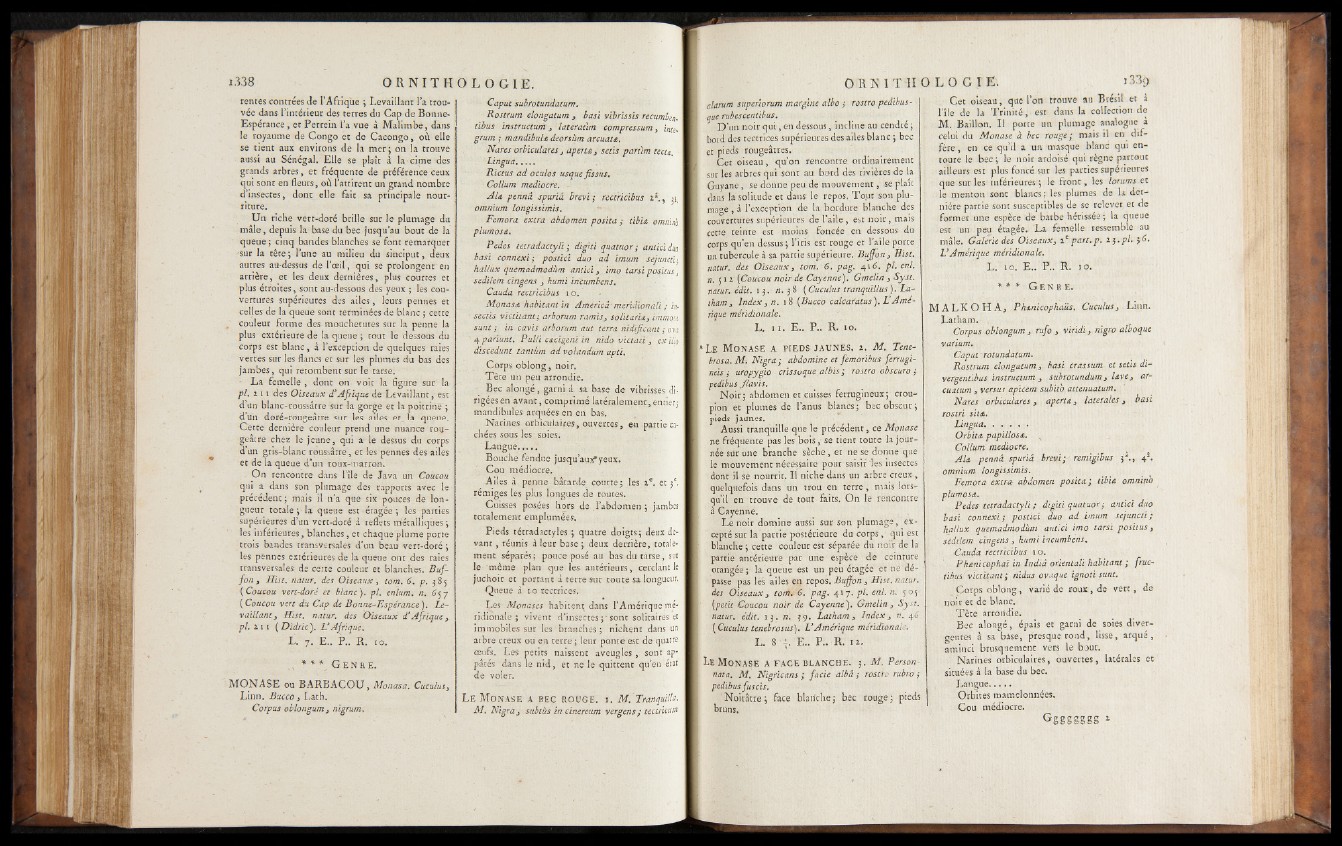 1338 ORNITHOLOGIE.
rentes contrées de l'Afrique ; Levaillant l'a trou-
vée dans l'intérieur des terres du Cap de Bonne-
Espérance, et Perrein l'a vue à Malimbe, dans
le royaume de Congo et de Cacongo, où elle
se tient aux environs de la mer ; on la trouve
aussi au Sénégal. Elle se plaît à la cime des
grands arbres, et fréquente de préférence ceux
qui sont en fleurs, où l'attirent un grand nombre
d'insectes, dont elle fait sa principale nour-
riture.
Un riche vert-doré brille sur le plumage du
mâle, depuis la base du bec jusqu'au bout de la
queue ; cinq bandes blanches se font remarquer
sur la tête ; l'une au milieu du sinciput, deux
autres au-dessus de l'œil, qui se prolongent en
arrière, et les deux dernières, plus courtes et
plus étroites, sont au-dessous des yeux ; les cou-
vertures supérieures des ailes, leurs pennes et
celles de la queue sont terminées de blanc ; cette
couleur forme des mouchetures sur la penne la
plus extérieure de la queue ; tout le dessous du
corps est blanc, à l'exception de quelques raies
vertes sur les flancs et sur les plumes du bas des
jambes, qui retombent sur le tarse.
La femelle, dont on voit la figure sur la
pl. 211 des Oiseaux d'Afrique de Levaillant, est
d'un blanc-roussâtre sur la gorge et la poitrine ;
d'un doré-rougeâtre sur les ailes et la queue.
Cette dernière couleur prend une nuance rou-
geâtre chez le jeune, qui a le dessus du corps
d'un gris-blanc roussâtre, et les pennes des ailes
et de la queue d'un roux-marron.
On rencontre dans l'île de Java un Coucou
qui a dans son plumage des rapports avec le
précédent ; mais il n'a que six pouces de lon-
gueur totale ; la queue est étagée ; les parties
supérieures d'un vert-doré à reflets métalliques ;
les inférieures, blanches, et chaque plume porte
trois bandes transversales d'un beau vert-doré ;
les pennes extérieures de la queue ont des raies
transversales de cette couleur et blanches. Buf-
fon, Hist. natur. des Oiseaux, tom. 6. p. 385
(Coucou vert-doré et blanc). pl. enlum. n. 657
(Coucou vert du Cap de Bonne-Espérance). Le-
vaillant, Hist. natur. des Oiseaux d'Afrique,
pl. 211 (Didric). L'Afrique.
L. 7. E.. P.. R. 10.
*** GENRE.
MONASE ou BARBACOU, Monasa. Cuculus,
Linn. Bucco, Lath.
Corpus oblongum, nigrum.
Caput subrotundatum.
Rostrum elongatum, basi vibrissis recumben-
tibus instructum, lateratìm compressum, inte-
grum ; mandibulæ deorsùm arcuatæ.
Nares orbiculares, apertæ, setis partìm tectæ.
Lingua.....
Rictus ad oculos usque fissus.
Collum mediocre.
Ala pennâ spuriâ brevi ; rectricibus 2ª., 3ª.
omnium longissimis.
Femora extra abdomen posita ; tibiæ omninò
plumosæ.
Pedes tetradactyli ; digiti quatuor ; antici duo
basi connexi ; postici duo ad imum sejuncti ;
hallux quemadmodùm antici, imo tarsi positus,
sedilem cingens, humi incumbens.
Cauda rectricibus 10.
Monasæ habitant in Americâ meridionali ; in-
sectis victitant ; arborum ramis, solitariæ, immotæ
sunt ; in cavis arborum aut terra nidificant ; ova
4 pariunt. Pulli cæcigeni in nido victati, ex illo
discedunt tantùm ad volandum apti.
Corps oblong, noir.
Tête un peu arrondie.
Bec alongé, garni à sa base de vibrisses di-
rigées en avant, comprimé latéralement, entier ;
mandibules arquées en en bas.
Narines orbiculaires, ouvertes, en partie ca-
chées sous les soies.
Langue.....
Bouche fendue jusqu'aux yeux.
Cou médiocre.
Ailes à penne bâtarde courte ; les 2e. et 3e.
rémiges les plus longues de toutes.
Cuisses posées hors de l'abdomen ; jambes
totalement emplumées.
Pieds tétradactyles ; quatre doigts ; deux de-
vant, réunis à leur base ; deux derrière, totale-
ment séparés ; pouce posé au bas du tarse, sur
le même plan que les antérieurs, cerclant le
juchoir et portant à terre sur toute sa longueur.
Queue à 10 rectrices.
Les Monases habitent dans l'Amérique mé-
ridionale ; vivent d'insectes ; sont solitaires et
immobiles sur les branches ; nichent dans un
arbre creux ou en terre ; leur ponte est de quatre
œufs. Les petits naissent aveugles, sont ap-
pâtés dans le nid, et ne le quittent qu'en état
de voler.
LE MONASE A BEC ROUGE. 1. M. Tranquilla.
M. Nigra, subtùs in cinereum vergens ; tectricum
ORNITHOLOGIE. 1339
alarum superiorum margine albo ; rostro pedibus-
que rubescentibus.
D'un noir qui, en dessous, incline au cendré ;
bord des tectrices supérieures des ailes blanc ; bec
et pieds rougeâtres.
Cet oiseau, qu'on rencontre ordinairement
sur les arbres qui sont au bord des rivières de la
Guyane, se donne peu de mouvement, se plaît
dans la solitude et dans le repos. Tout son plu-
mage, à l'exception de la bordure blanche des
couvertures supérieures de l'aile, est noir, mais
cette teinte est moins foncée en dessous du
corps qu'en dessus ; l'iris est rouge et l'aile porte
un tubercule à sa partie supérieure. Buffon, Hist.
natur. des Oiseaux, tom. 6. pag. 416. pl. enl.
n. 512 (Coucou noir de Cayenne). Gmelin, Syst.
natur. édit. 13. n. 38 (Cuculus tranquillus). La-
tham, Index, n. 18 (Bucco calcaratus). L'Amé-
rique méridionale.
L. 11. E.. P.. R. 10.
* LE MONASE A PIEDS JAUNES. 2. M. Tene-
brosa. M. Nigra ; abdomine et femoribus ferrugi-
neis ; uropygio crissoque albis ; rostro obscuro ;
pedibus flavis.
Noir ; abdomen et cuisses ferrugineux ; crou-
pion et plumes de l'anus blancs ; bec obscur ;
pieds jaunes.
Aussi tranquille que le précédent, ce Monase
ne fréquente pas les bois, se tient toute la jour-
née sur une branche sèche, et ne se donne que
le mouvement nécessaire pour saisir les insectes
dont il se nourrit. Il niche dans un arbre creux,
quelquefois dans un trou en terre, mais lors-
qu'il en trouve de tout faits. On le rencontre
à Cayenne.
Le noir domine aussi sur son plumage, ex-
cepté sur la partie postérieure du corps, qui est
blanche ; cette couleur est séparée du noir de la
partie antérieure par une espèce de ceinture
orangée ; la queue est un peu étagée et ne dé-
passe pas les ailes en repos. Buffon, Hist. natur.
des Oiseaux, tom. 6. pag. 417. pl. enl. n. 505
(petit Coucou noir de Cayenne). Gmelin, Syst.
natur. édit. 13. n. 39. Latham, Index, n. 46
(Cuculus tenebrosus). L'Amérique méridionale.
L. 8 ½. E.. P.. R. 12.
LE MONASE A FACE BLANCHE. 3. M. Person-
nata. M. Nigricans ; facie albâ ; rostro rubro ;
pedibus fuscis.
Noirâtre ; face blanche ; bec rouge ; pieds
bruns.
Cet oiseau, que l'on trouve au Brésil et à
l'île de la Trinité, est dans la collection de
M. Baillon. Il porte un plumage analogue à
celui du Monase à bec rouge ; mais il en dif-
fère, en ce qu'il a un masque blanc qui en-
toure le bec ; le noir ardoisé qui règne partout
ailleurs est plus foncé sur les parties supérieures
que sur les inférieures ; le front, les lorums et
le menton sont blancs : les plumes de la der-
nière partie sont susceptibles de se relever et de
former une espèce de barbe hérissée ; la queue
est un peu étagée. La femelle ressemble au
mâle. Galerie des Oiseaux, 2e part. p. 23. pl. 36.
L'Amérique méridionale.
L. 10. E.. P.. R. 10.
*** GENRE.
MALKOHA, Phœnicophaüs. Cuculus, Linn.
Latham.
Corpus oblongum, rufo, viridi, nigro alboque
varium.
Caput rotundatum.
Rostrum elongatum, basi crassum et setis di-
vergentibus instructum, subrotundum, læve, ar-
cuatum, versus apicem subitò attenuatum.
Nares orbiculares, apertæ, laterales, basi
rostri sitæ.
Lingua......
Orbitæ papillosæ.
Collum mediocre.
Ala pennâ spuriâ brevi ; remigibus 3ª., 4ª.
omnium longissimis.
Femora extra abdomen posita ; tibiæ omninò
plumosæ.
Pedes tetradactyli ; digiti quatuor ; antici duo
basi connexi ; postici duo ad imum sejuncti ;
hallux quemadmodùm antici imo tarsi positus,
sedilem cingens, humi incumbens.
Cauda rectricibus 10.
Phœnicophai in Indiâ orientali habitant ; fruc-
tibus victitant ; nidus ovaque ignoti sunt.
Corps oblong, varié de roux, de vert, de
noir et de blanc.
Tête arrondie.
Bec alongé, épais et garni de soies diver-
gentes à sa base, presque rond, lisse, arqué,
aminci brusquement vers le bout.
Narines orbiculaires, ouvertes, latérales et
situées à la base du bec.
Langue.....
Orbites mamelonnées.
Cou médiocre.
Gggggggg 2